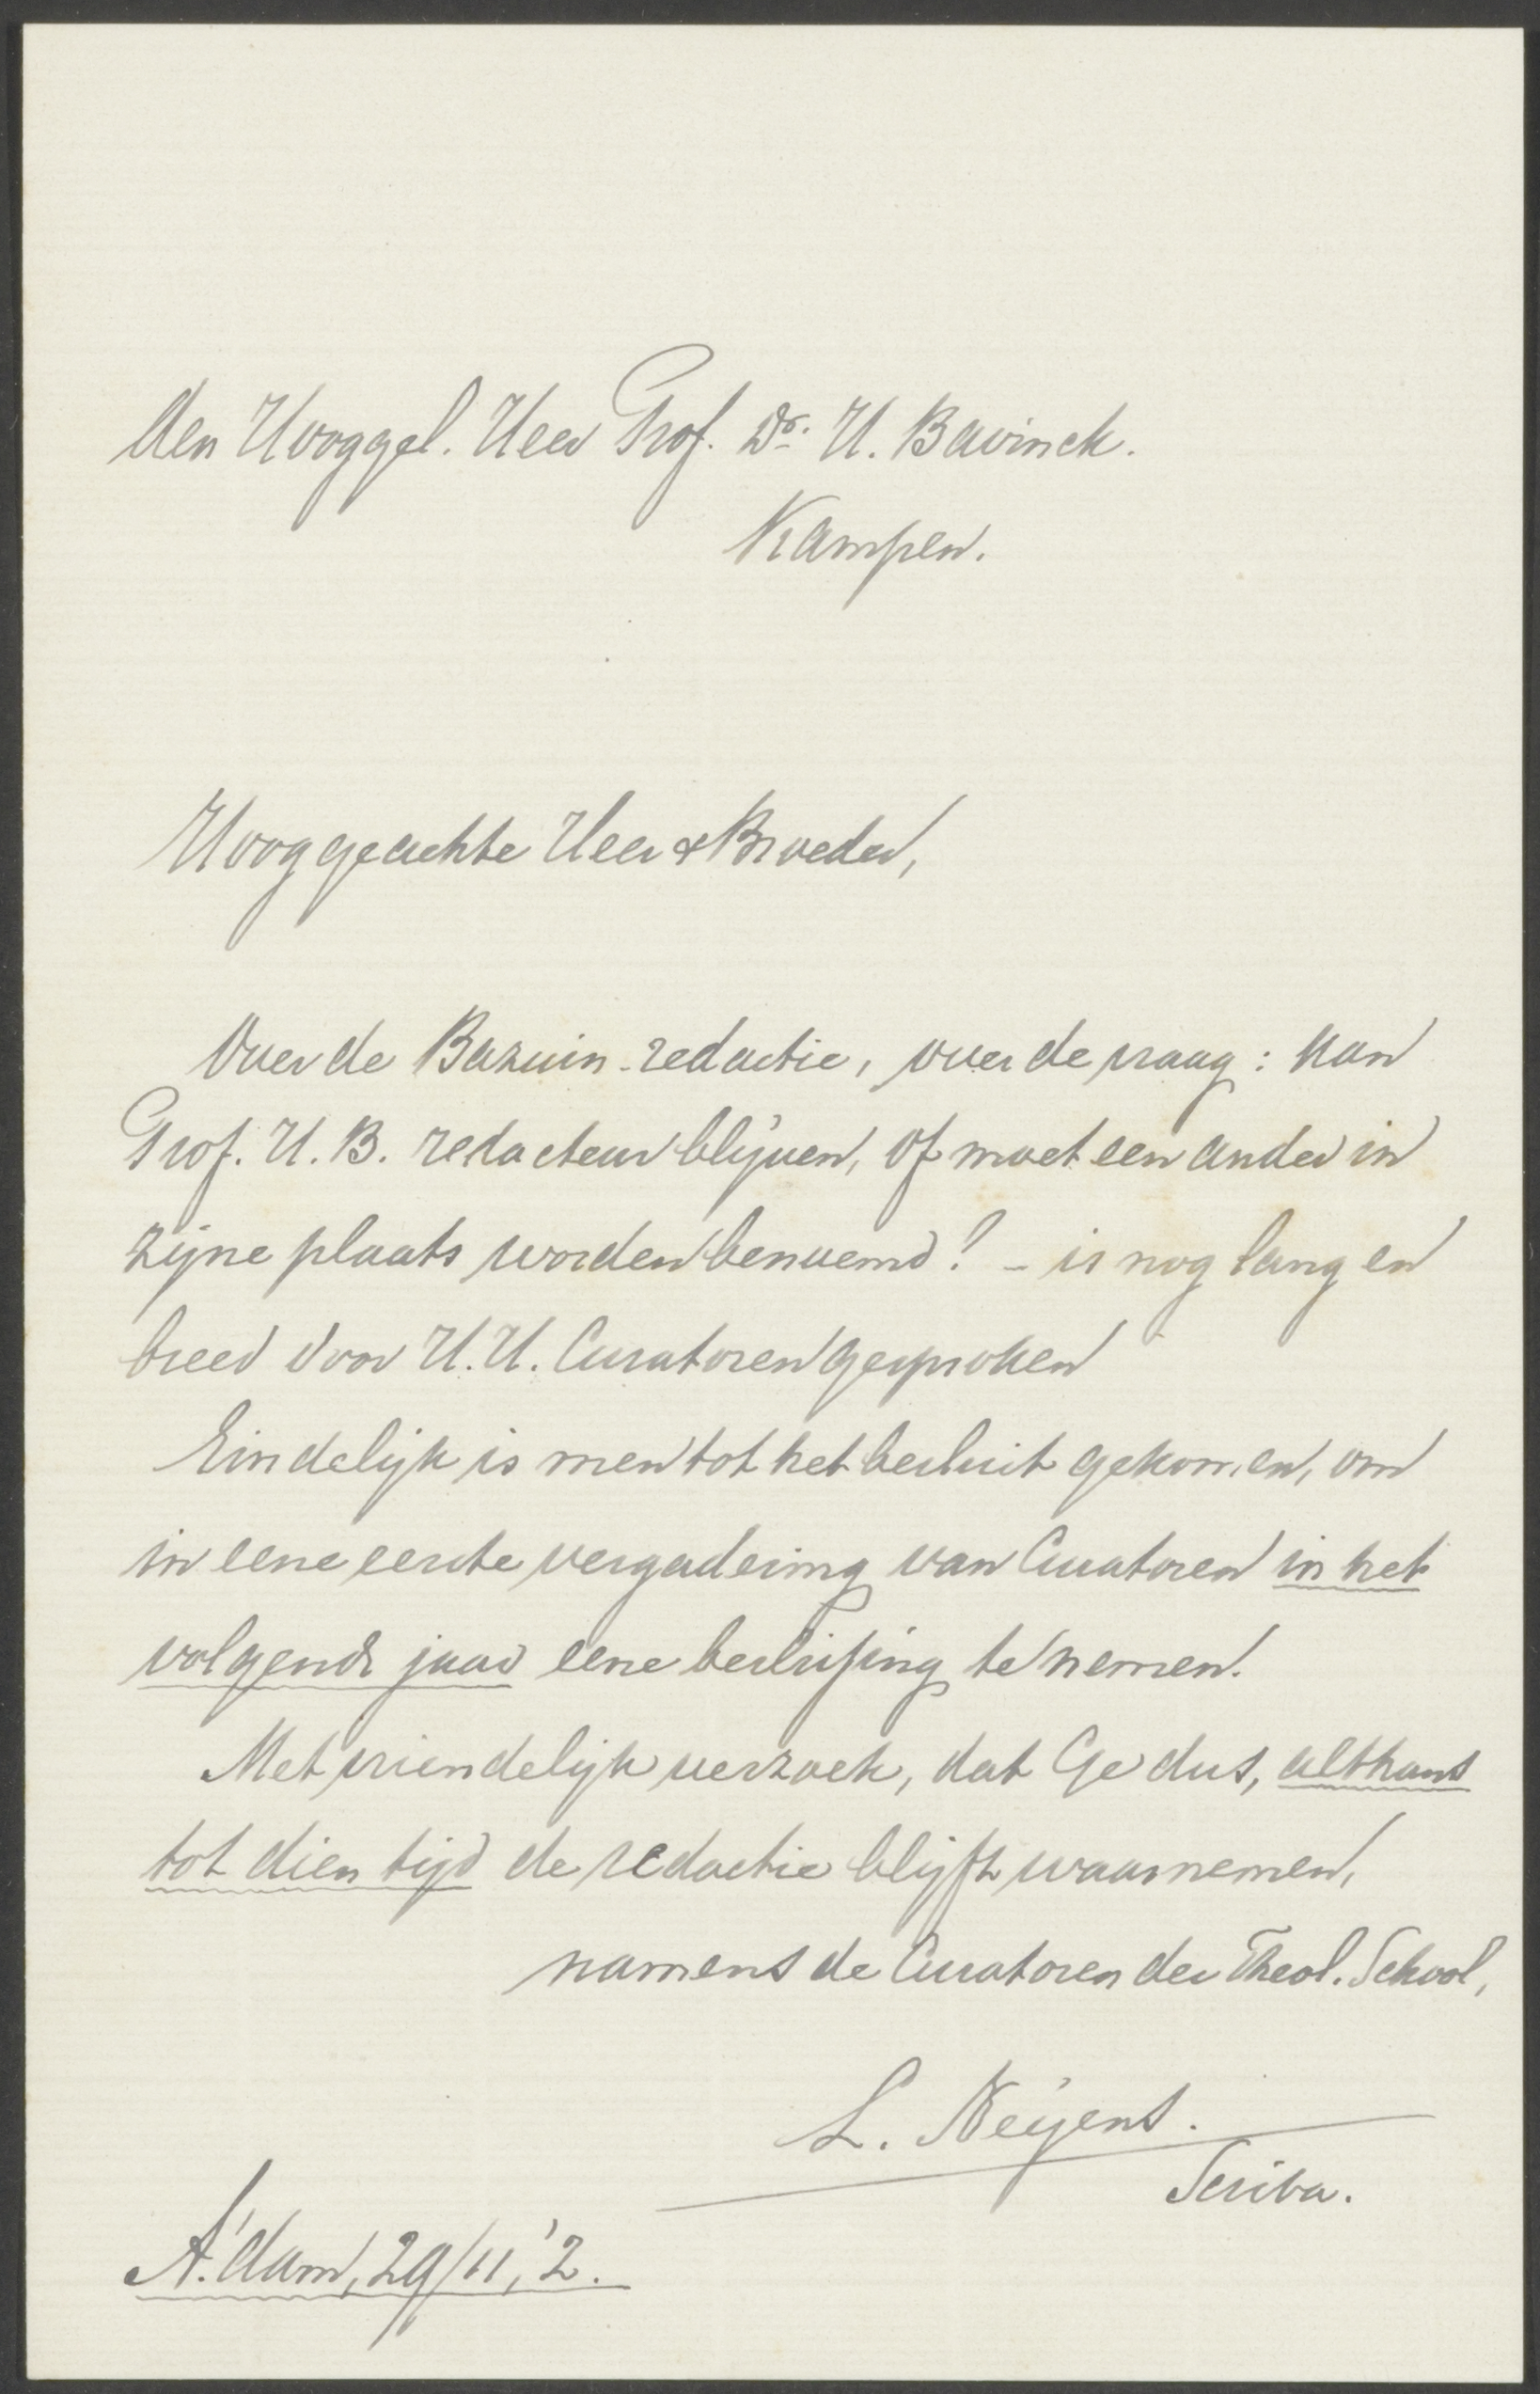 Den Hooggel. Heer Prof. Dr. H. Bavinck.
Kampen.
Hooggeachte Heer & Broeder,
Over de Bazuin-redactie, over de vraag: kan
Prof. H. B. redacteur blijven, of moet een ander in
zijne plaats worden benoemd? - is nog lang en
breed door H.H. Curatoren gesproken
Eindelijk is men tot het besluit gekomen, om
in eene eerste vergadering van Curatoren in het
volgende jaar eene beslissing te nemen.
Met vriendelijk verzoek, dat Ge dus, althans
tot dien tijd de redactie blijft waarnemen,
namens de Curatoren der Theol. School,
L. Neijens.
Scriba.
A'dam, 29/11, '2.